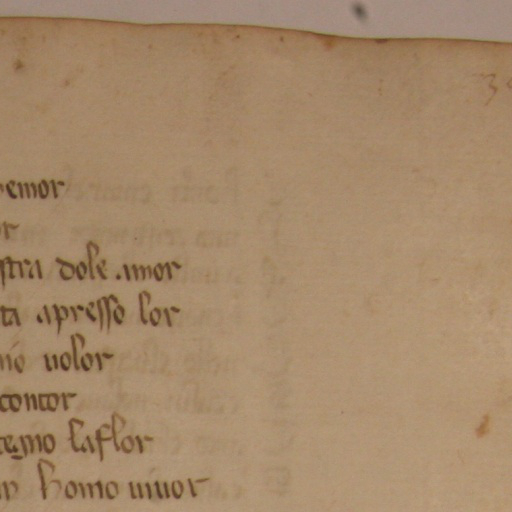 emor
or
stra dole amor
ta apresso lor
uolor
contor
laflor
homo uiuor